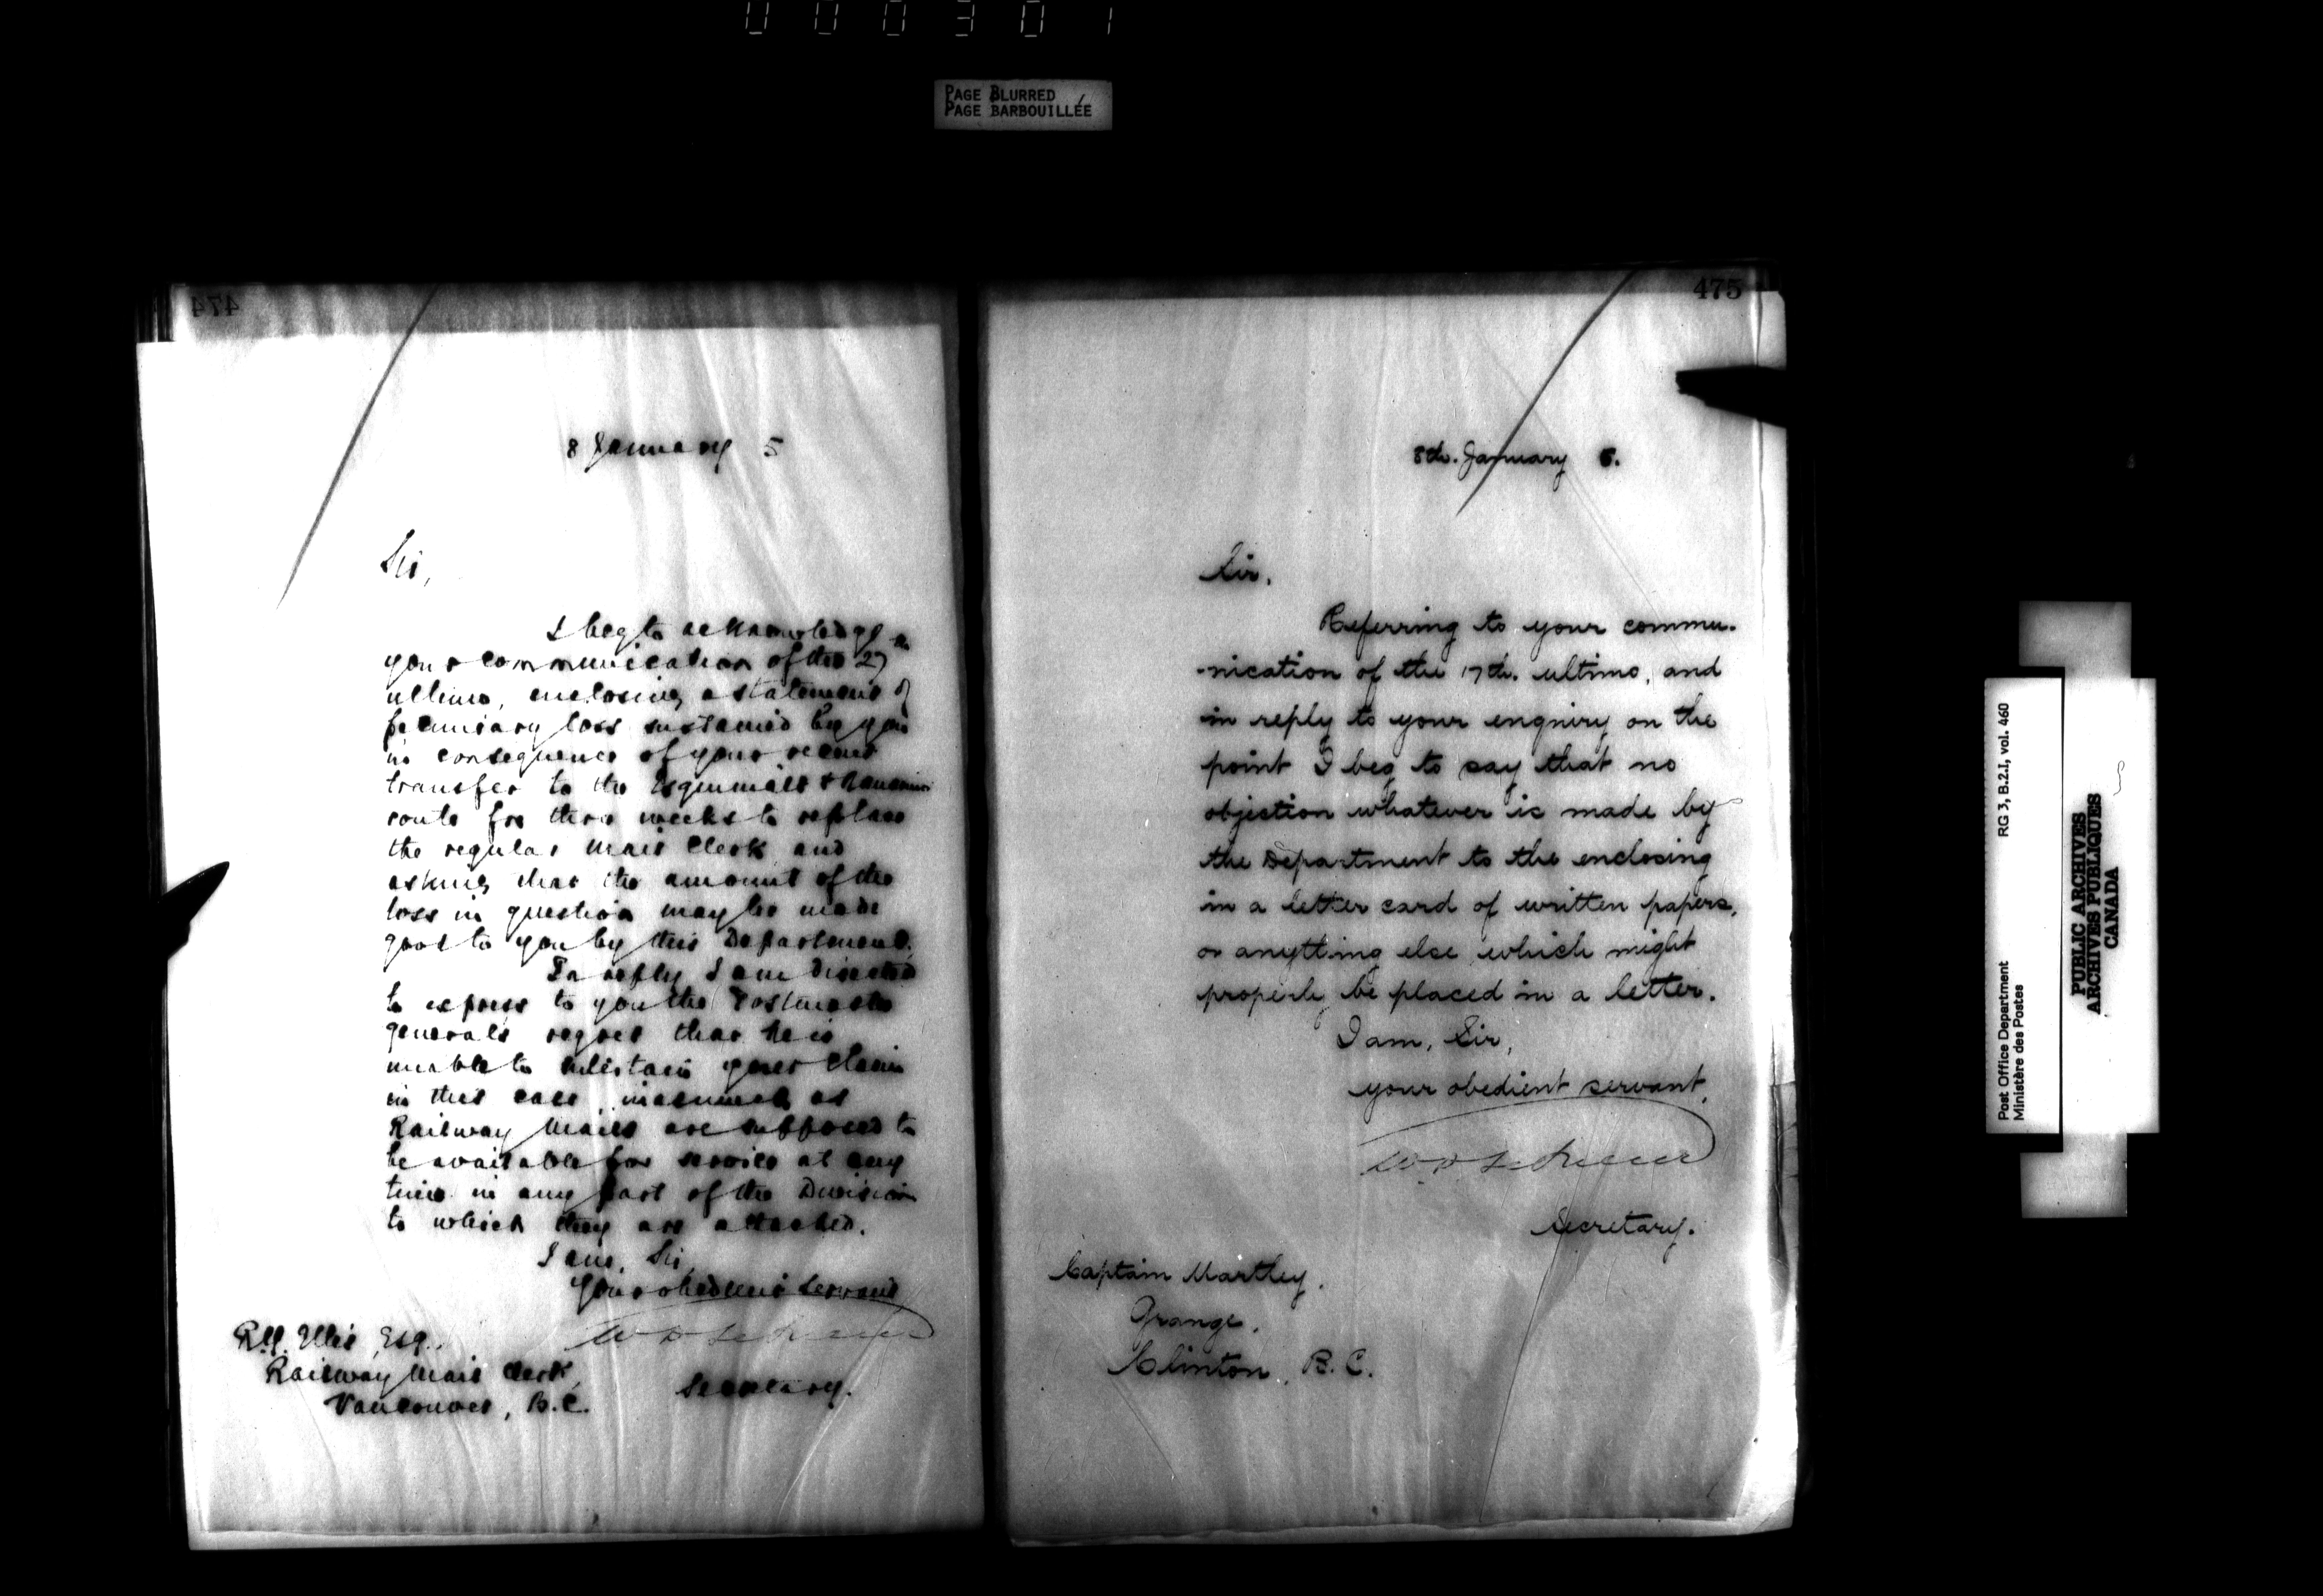 000301
PAGE BLURRED
PAGE BARBOUILLÉE
474
8 January 5
Sir,
I beg to acknowledge
your communication of the 27th
ultimo, enclosing a statement of
pecuniary loss sustained by you
in consequence of your recent
transfer to the Esquimalt & Nanaimo
route for three weeks to replace
the regular Mail Clerk and
asking that the amount of the
loss in question may be made
good to you by this Department.
In reply I am directed
to express to you the Postmaster
General's regret that he is
unable to entertain your claim
in this case, inasmuch as
Railway Mail are supposed to
be available for service at any
time in any part of the Division
to which they are attached.
I am, Sir,
Your obedient Servant
Secretary.
Ellis, Esq.
Railway Mail Clerk,
Vancouver, B.C.
475
8th. January 5.
Sir,
Referring to your commu-
-nication of the 17th. ultimo, and
in reply to your enquiry on the
point I beg to say that no
objection whatever is made by
the Department to the enclosing
in a letter card of written papers,
or anything else which might
properly be placed in a letter.
I am, Sir,
your obedient servant,
Secretary.
Captain Martley.
Grange.
Clinton, B.C.
Post Office Department RG 3, B.2.I, vol. 460
Ministère des Postes
PUBLIC ARCHIVES
ARCHIVES PUBLIQUES
CANADA